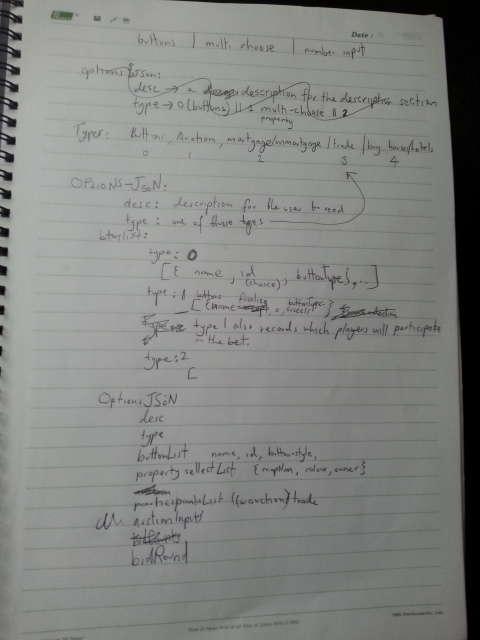 Date :
buttons | multi choose | number input
options Json:
desc → a description for the description section
type → 0 (buttons) || 1 multi-choose || 2
property
Types: Buttons, Auction, mortgage/unmortgage / trade / buy houses/hotels
0 1 2 3 4
OPTIONS-JSON:
desc: description for the user to read
type: one of those types
type: 0
[{ name, id (choice), buttonType},...]
type: 1
type 1 also records which players will participate
in the bet.
type: 2
[
Options JSON
desc
type
buttonList name, id, button-style,
property sellect List { , colour, owner}
trade
auctionInputs
bidRound